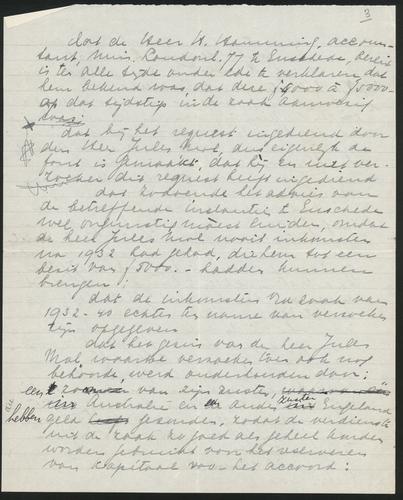 3
dat de Heer H. Hamming, accoun-
tant, Huis, 77 te Enschede, bereid
is te alle tijde onder ede te verklaren dat
hem bekend was, dat deze ƒ 4000 à ƒ 5000-
op dat tijdstip in de zaak aanwezig
was;
dat bij het request ingediend door
den Heer Jules Mol, dus eigenlijk de
fout is gemaakt, dat hij en niet ver-
zoeker dit request heeft ingediend
dat zodoende het advies van
de betreffende instantie te Enschede
wel ongunstig moest luiden, omdat
de heer Jules Mol nooit inkomsten
na 1932 had gehad, die hem tot een
bezit van ƒ 5000.- hadden kunnen
brengen;
dat de inkomsten der zaak van
1932-40 echter te name van verzoeker
zijn opgegeven
dat het gezin van de heer Jules
Mol, waartoe verzoeker toen ook nog
behoorde, werd onderhouden door:
een van zijn zusters,
in Australië en andere zuster in Engeland
die hebben geld gezonden, zodat de verdienste
uit de zaak zo goed als geheel konden
worden gebruikt voor het reserveren
van kapitaal voor het accoord;